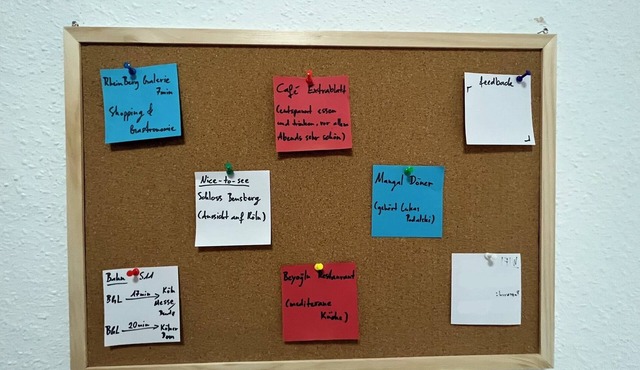 RheinBerg Galerie
7min
Shopping &
Gastronomie
Café Extrablatt
(entspannt essen
und trinken, vor allem
Abends sehr schön)
feedback
Nice-to-see
Schloss Bensberg
(Aussicht auf Köln)
Mangal Döner
(gehört Lukas
Podolski)
Bahn S11
BGL 17min Köln
Messe
BGL 20min Kölner
Dom
Restaurant
(mediterane
Küche)